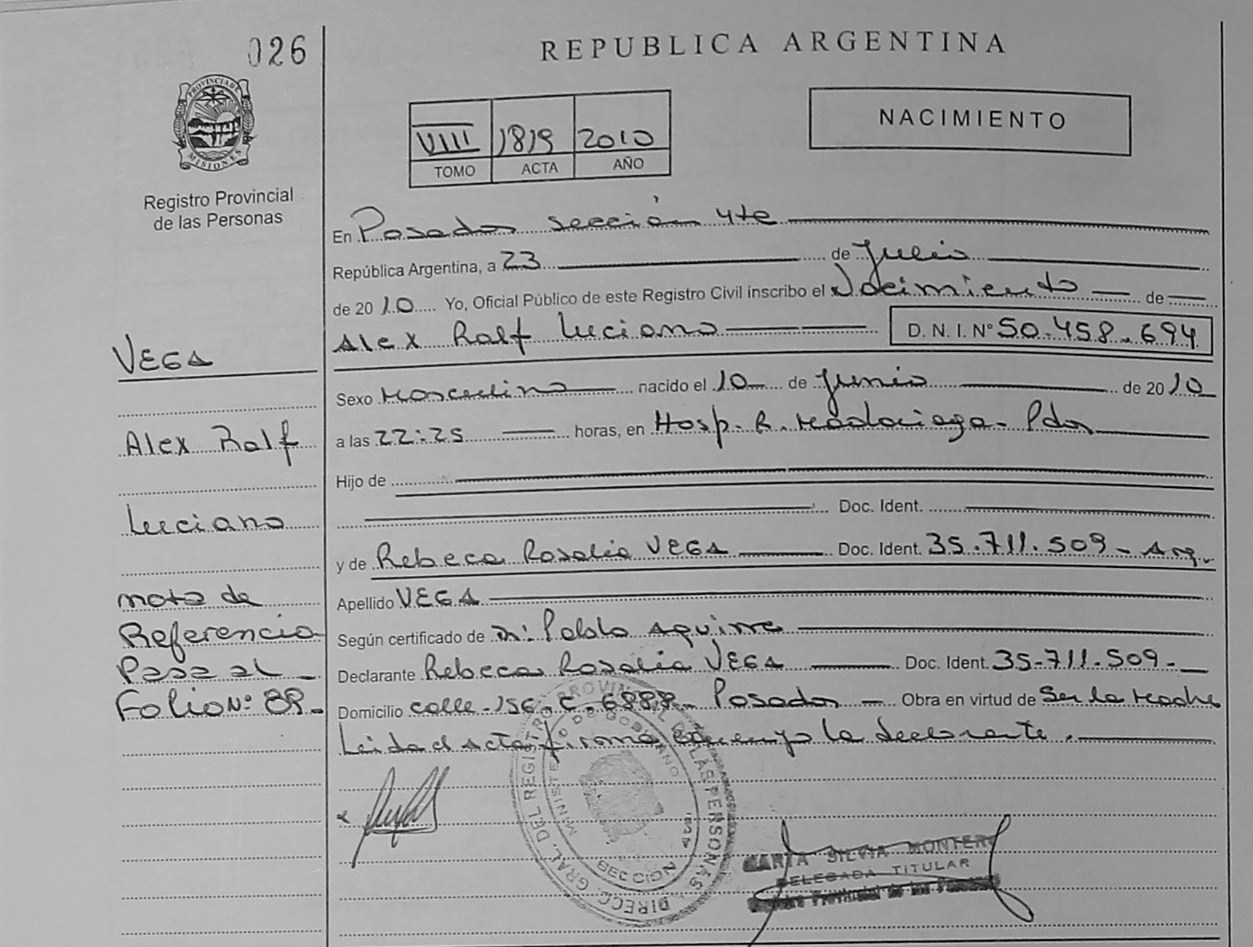 026
REPUBLICA ARGENTINA
PROVINCIA DE MISIONES
Registro Provincial
de las Personas
VIII 1819 2010
TOMO ACTA AÑO
NACIMIENTO
En Posadas sección 4te
República Argentina, a 23 de Julio
de 2010 Yo, Oficial Público de este Registro Civil inscribo el Nacimiento de
Alex Ralf Luciano D. N. I. Nº 50.458.694
Sexo Masculino nacido el 10 de Junio de 2010
a las 22:25 horas, en Hosp. R. Madariaga - Pdas
Hijo de
Doc. Ident.
y de Rebeca Rosalia VEGA Doc. Ident. 35.711.509 - Arg.
Apellido VEGA
Según certificado de Dr: Pablo Aguirre
Declarante Rebeca Rosalia VEGA Doc. Ident. 35-711.509-
Domicilio calle-156-C-6888- Posadas Obra en virtud de Ser la Madre
Leida el Acta firma conmigo la declarante.
VEGA
Alex Ralf
Luciano
nota de
Referencia
Pasa al
Folio Nº: 88-
DIRECC. GRAL. DEL REGISTRO PROVINCIAL DE LAS PERSONAS
MINISTERIO DE GOBIERNO
SECCION
MARIA SILVIA MONTERO
DELEGADA TITULAR
Provincial de las Personas